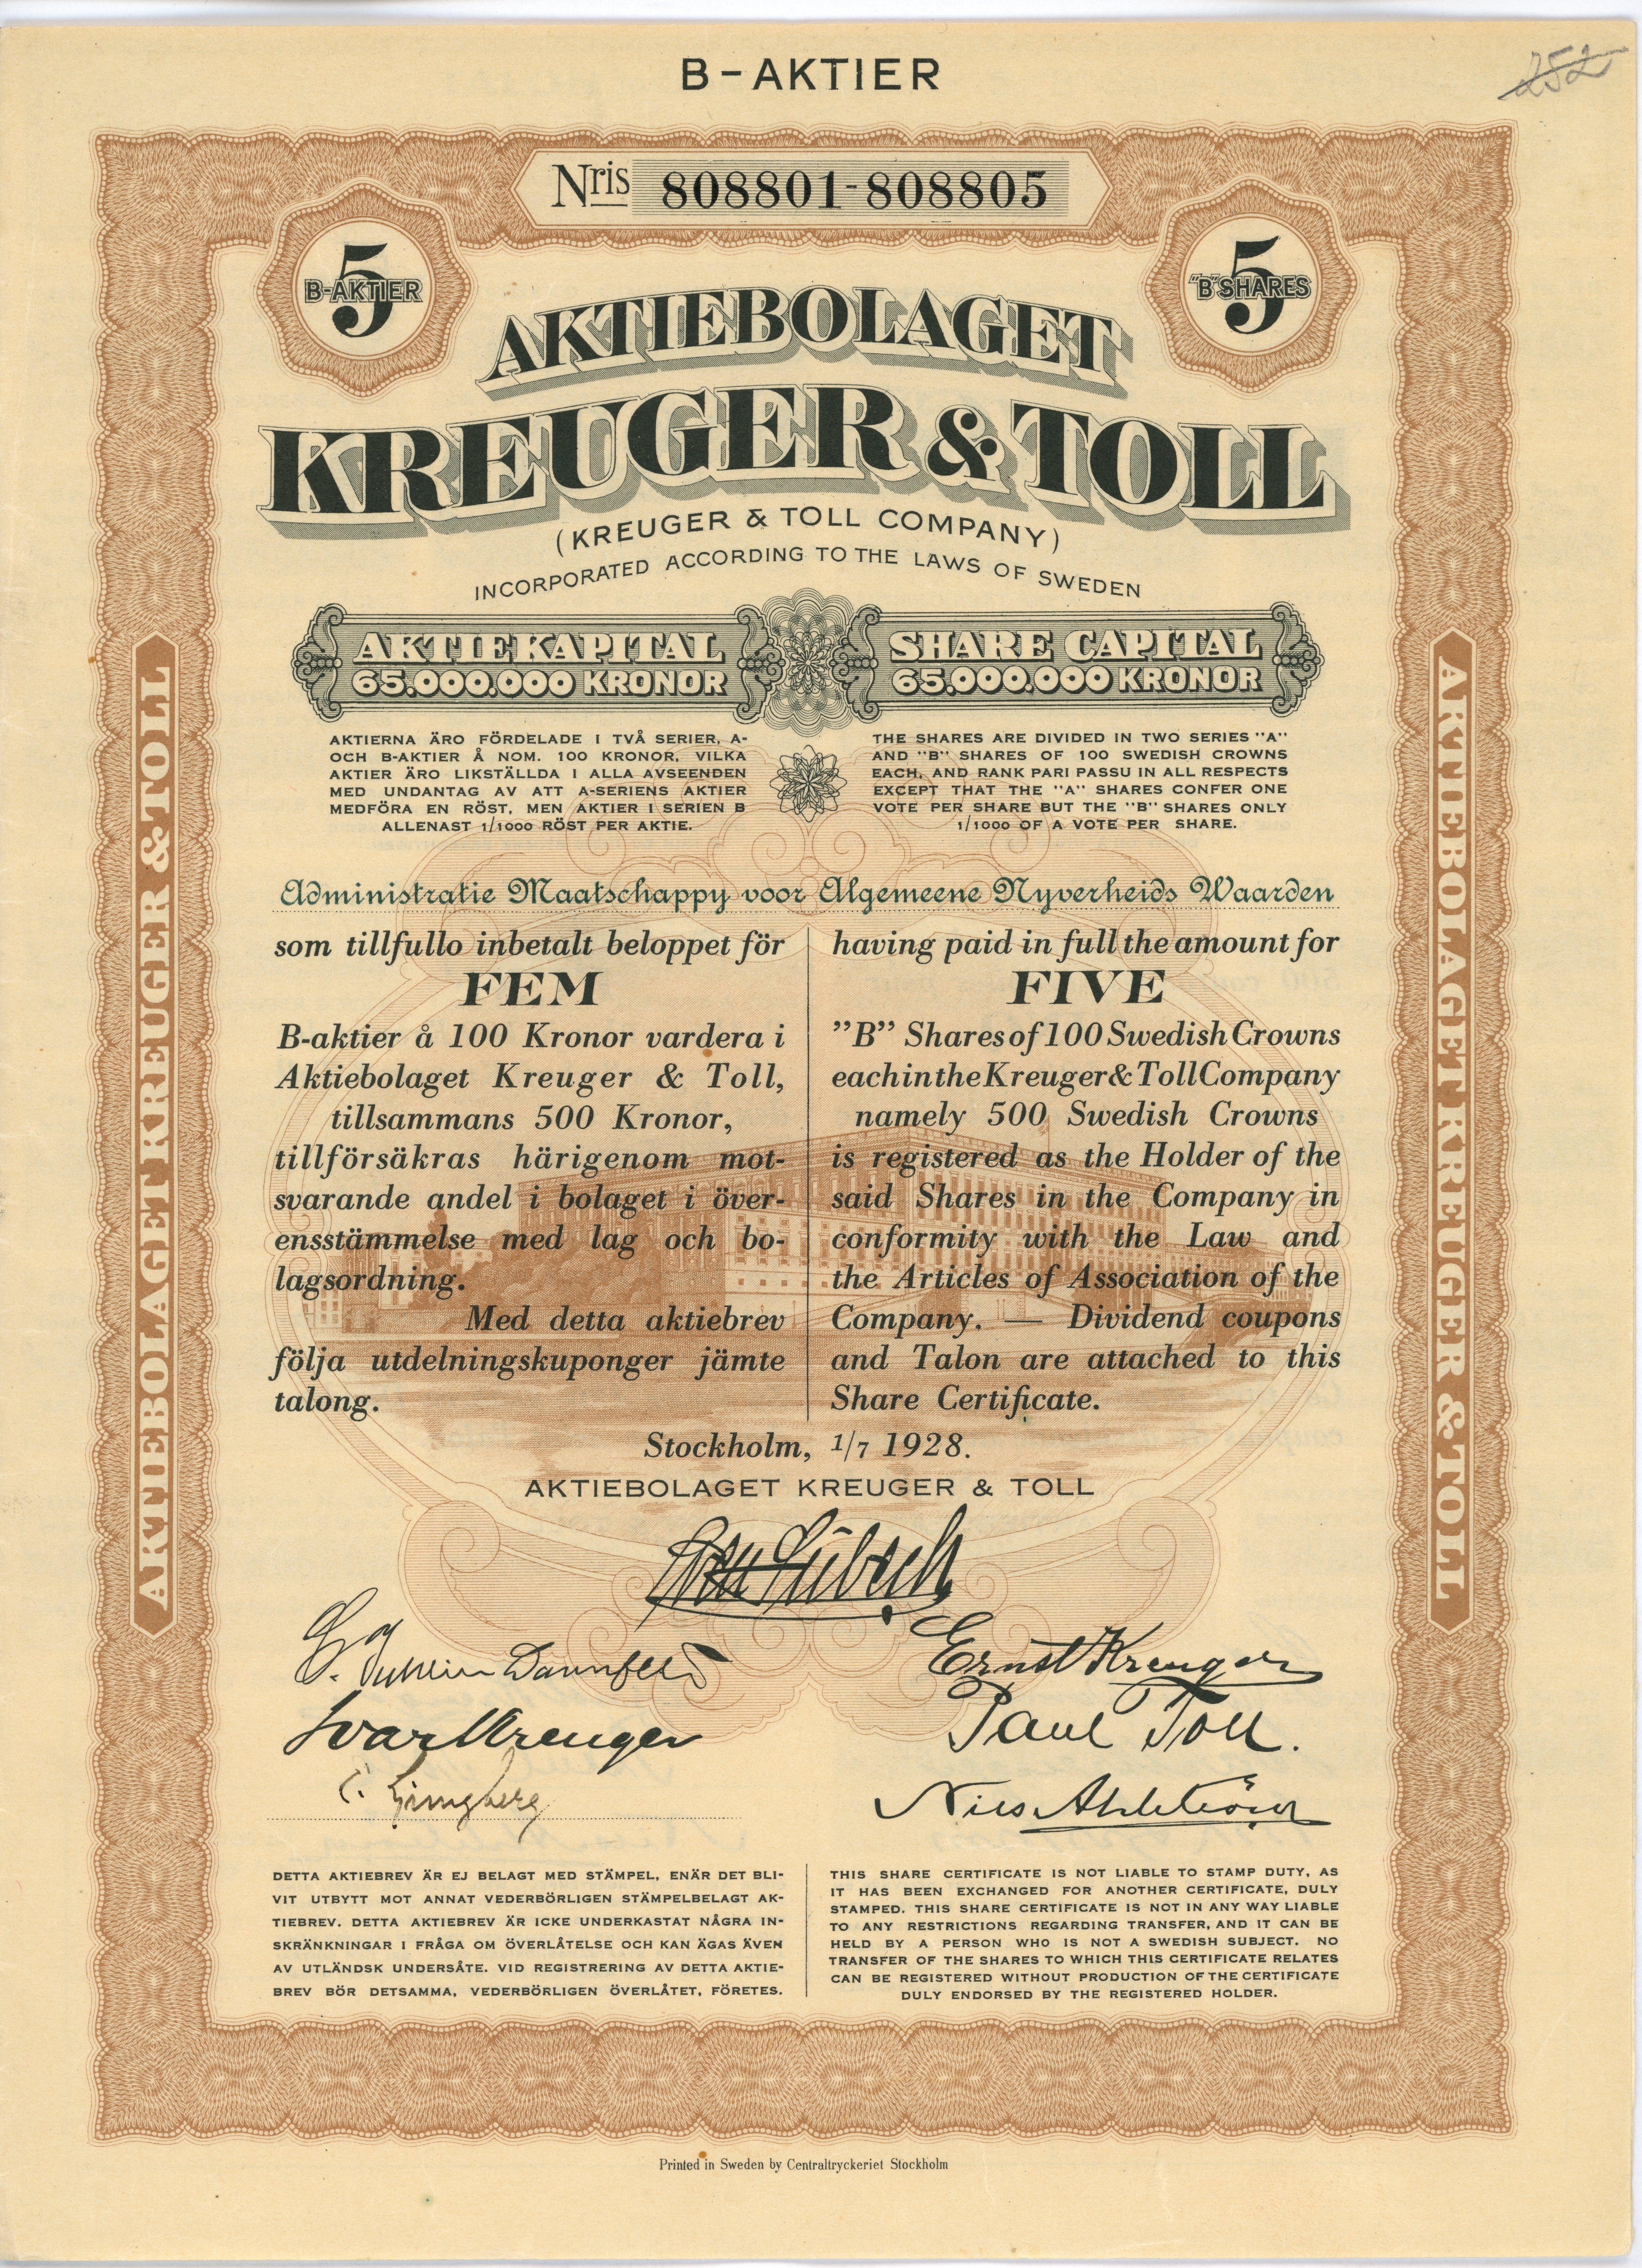 B-AKTIER
252
Nris 808801-808805
5
B-AKTIER
5
"B" SHARES
AKTIEBOLAGET
KREUGER & TOLL
(KREUGER & TOLL COMPANY)
INCORPORATED ACCORDING TO THE LAWS OF SWEDEN
AKTIEKAPITAL
65.000.000 KRONOR
SHARE CAPITAL
65.000.000 KRONOR
AKTIERNA ÄRO FÖRDELADE I TVÅ SERIER, A-
OCH B-AKTIER Å NOM. 100 KRONOR, VILKA
AKTIER ÄRO LIKSTÄLLDA I ALLA AVSEENDEN
MED UNDANTAG AV ATT A-SERIENS AKTIER
MEDFÖRA EN RÖST, MEN AKTIER I SERIEN B
ALLENAST 1/1000 RÖST PER AKTIE.
THE SHARES ARE DIVIDED IN TWO SERIES "A"
AND "B" SHARES OF 100 SWEDISH CROWNS
EACH, AND RANK PARI PASSU IN ALL RESPECTS
EXCEPT THAT THE "A" SHARES CONFER ONE
VOTE PER SHARE BUT THE "B" SHARES ONLY
1/1000 OF A VOTE PER SHARE.
Administratie Maatschappy voor Algemeene Nyverheids Waarden
som tillfullo inbetalt beloppet för
FEM
B-aktier å 100 Kronor vardera i
Aktiebolaget Kreuger & Toll,
tillsammans 500 Kronor,
tillförsäkras härigenom mot-
svarande andel i bolaget i över-
ensstämmelse med lag och bo-
lagsordning.
Med detta aktiebrev
följa utdelningskuponger jämte
talong.
having paid in full the amount for
FIVE
"B" Shares of 100 Swedish Crowns
each in the Kreuger & Toll Company
namely 500 Swedish Crowns
is registered as the Holder of the
said Shares in the Company in
conformity with the Law and
the Articles of Association of the
Company. — Dividend coupons
and Talon are attached to this
Share Certificate.
Stockholm, 1/7 1928.
AKTIEBOLAGET KREUGER & TOLL
Ernst Kreuger
Ivar Kreuger
Paul Toll.
C. Ljungberg
Nils Ahlström
DETTA AKTIEBREV ÄR EJ BELAGT MED STÄMPEL, ENÄR DET BLI-
VIT UTBYTT MOT ANNAT VEDERBÖRLIGEN STÄMPELBELAGT AK-
TIEBREV. DETTA AKTIEBREV ÄR ICKE UNDERKASTAT NÅGRA IN-
SKRÄNKNINGAR I FRÅGA OM ÖVERLÅTELSE OCH KAN ÄGAS ÄVEN
AV UTLÄNDSK UNDERSÅTE. VID REGISTRERING AV DETTA AKTIE-
BREV BÖR DETSAMMA, VEDERBÖRLIGEN ÖVERLÅTET, FÖRETES.
THIS SHARE CERTIFICATE IS NOT LIABLE TO STAMP DUTY, AS
IT HAS BEEN EXCHANGED FOR ANOTHER CERTIFICATE, DULY
STAMPED. THIS SHARE CERTIFICATE IS NOT IN ANY WAY LIABLE
TO ANY RESTRICTIONS REGARDING TRANSFER, AND IT CAN BE
HELD BY A PERSON WHO IS NOT A SWEDISH SUBJECT. NO
TRANSFER OF THE SHARES TO WHICH THIS CERTIFICATE RELATES
CAN BE REGISTERED WITHOUT PRODUCTION OF THE CERTIFICATE
DULY ENDORSED BY THE REGISTERED HOLDER.
AKTIEBOLAGET KREUGER & TOLL
AKTIEBOLAGET KREUGER & TOLL
Printed in Sweden by Centraltryckeriet Stockholm